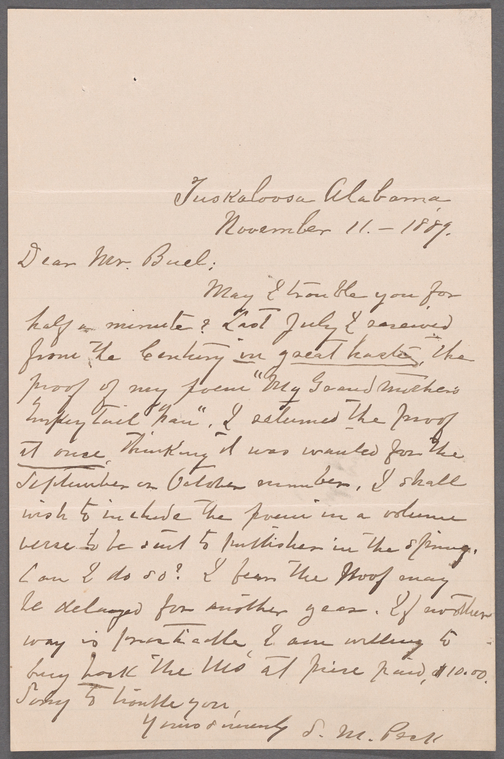 Tuskaloosa Alabama,
November 11. - 1889.
Dear Mr. Buel;
May I trouble you for
half a minute? Last July I received
from the Century "in great haste," the
proof of my poem "My Grandmother's
Turkey tail Fan". I returned the proof
at once, thinking it was wanted for the
September or October number. I shall
wish to include the poem in a volume
verse to be sent to publisher in the spring.
Can I do so? I fear the proof may
be delayed for another year. If no other
way is practicable, I am willing to
buy back the MS at price paid, $10.00.
Sorry to trouble you,
Yours sincerely S. M. Peck